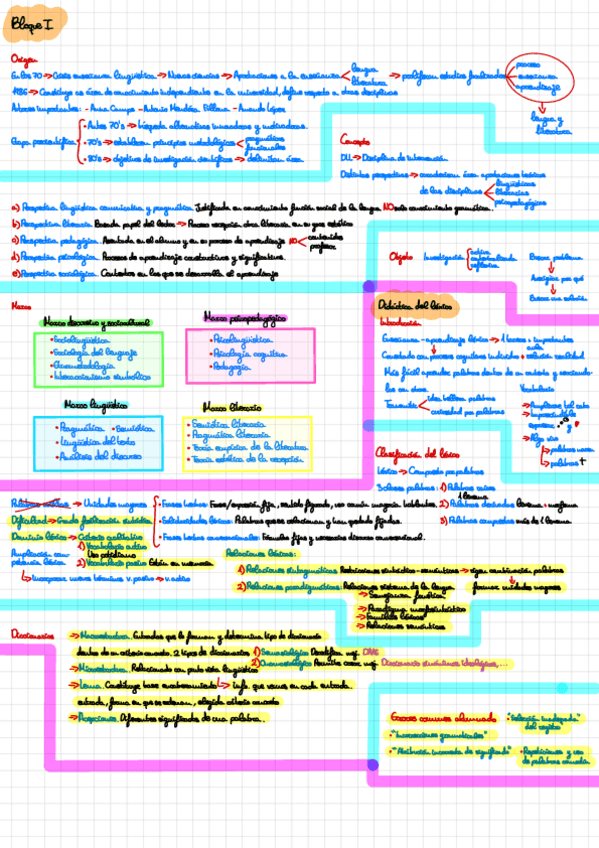 Bloque I
Origen
En los 70 → Crisis enseñanza lingüística → Nuevas ciencias → Aportaciones a la enseñanza
lengua
literatura
→ proliferan estudios finalidades
proceso
enseñanza
aprendizaje
lengua y
literatura
1986 → Constituye su área de conocimiento independiente en la universidad, define respecto a otras disciplinas
Autores importantes: - Anna Camps - Antonio Mendoza Fillola - Amando López
• Antes 70's → búsqueda alternativas innovadoras y motivadoras.
• 70's → establecen principios metodológicos
pragmáticos
funcionales
• 80's → objetivos de investigación científicos → delimitan área.
Concepto
DLL → Disciplina de intervención
Distintas perspectivas →
de las disciplinas
lingüísticas
literarias
psicopedagógicas
a) Perspectiva lingüística comunicativa y pragmática. Justificada en conocimiento función social de la lengua NO solo conocimiento gramatical.
b) Perspectiva literaria. Basada papel del lector → Proceso recepción obra literaria
c) Perspectiva pedagógica. Asentada en el alumno y en su proceso de aprendizaje NO
contenidos
profesor
d) Perspectiva psicológica. Procesos de aprendizaje constructivos y significativos.
e) Perspectiva sociológica. Contextos en los que se desarrolla el aprendizaje
Objeto Investigación
activa
contextualizada
reflexiva
Buscar problema
Averiguar por qué
Buscar una solución
Marcos
Marco discursivo y sociocultural
• Sociolingüística
• Sociología del lenguaje
• Etnometodología
• Interaccionismo simbólico
Marco psicopedagógico
• Psicolingüística
• Psicología cognitiva
• Pedagogía
Marco lingüístico
• Pragmática • Semiótica
• Lingüística del texto
• Análisis del discurso
Marco literario
• Semiótica literaria
• Pragmática literaria
• Teoría empírica de la literatura
• Teoría estética de la recepción
Didáctica del léxico
Introducción
Enseñanza - aprendizaje léxico → 1 tareas + importantes
aula
Conectado con procesos cognitivos individuo + relación realidad
Más fácil aprender palabras dentro de un contexto
Transmitir
idea belleza palabras
curiosidad por palabras
Vocabulario
→ Ampliarse tal cosa
→ Imprescindible
→ Algo vivo
palabras nuevas
palabras †
Clasificación del léxico
Léxico → Compuesto por palabras
3 clases palabras: 1) Palabras simples
1 lexema
2) Palabras derivadas lexema + morfema
3) Palabras compuestas más de 1 lexema
→ Unidades mayores
• Frases hechas: Frase/expresión fija, sentido figurado,
• Solidaridades léxicas: Palabras que se relacionan y han quedado fijadas.
• Frases hechas convencionales: Fórmulas fijas y universales discurso convencional.
Disponibilidad → Grado facilitación
Dominio léxico → Criterio cualitativo
1) Vocabulario activo
Uso cotidiano
2) Vocabulario pasivo Están en memoria
Ampliación competencia léxica
→ Incorporar nuevos términos v. pasivo → v. activo
Relaciones léxicas:
1) Relaciones sintagmáticas: Relaciones sintáctico-semánticas → rigen combinación palabras
formar unidades mayores
2) Relaciones paradigmáticas: Relaciones sistema de la lengua
→ Semejanza fonética
→ Paradigma morfosintáctico
→ Familias léxicas
→ Relaciones semánticas
Diccionarios
→ Macroestructura. Entradas que lo forman y determina tipo de diccionario
dentro de un criterio concreto. 2 tipos de diccionarios
1) Semasiológico Decodifica msj. DRAE
2) Onomasiológico Permite crear msj. Diccionario sinónimos ideológicos,...
→ Microestructura. Relacionada con parte más lingüística
→ Lema. Constituye base encabezamiento → info. que vamos en cada entrada.
entrada, forma en que se ordenan, elegida criterio concreto
→ Acepciones. Diferentes significados de una palabra..
Errores comunes alumnado
• "Selección inadecuada"
del registro
• "Incorrecciones gramaticales"
• "Atribución incorrecta de significado"
• Repeticiones y uso
de palabras comodín.